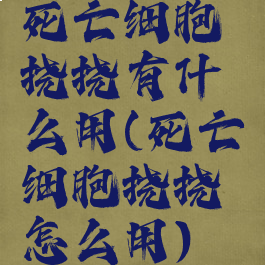 死亡细胞
挠挠有什
么用(死亡
细胞挠挠
怎么用)